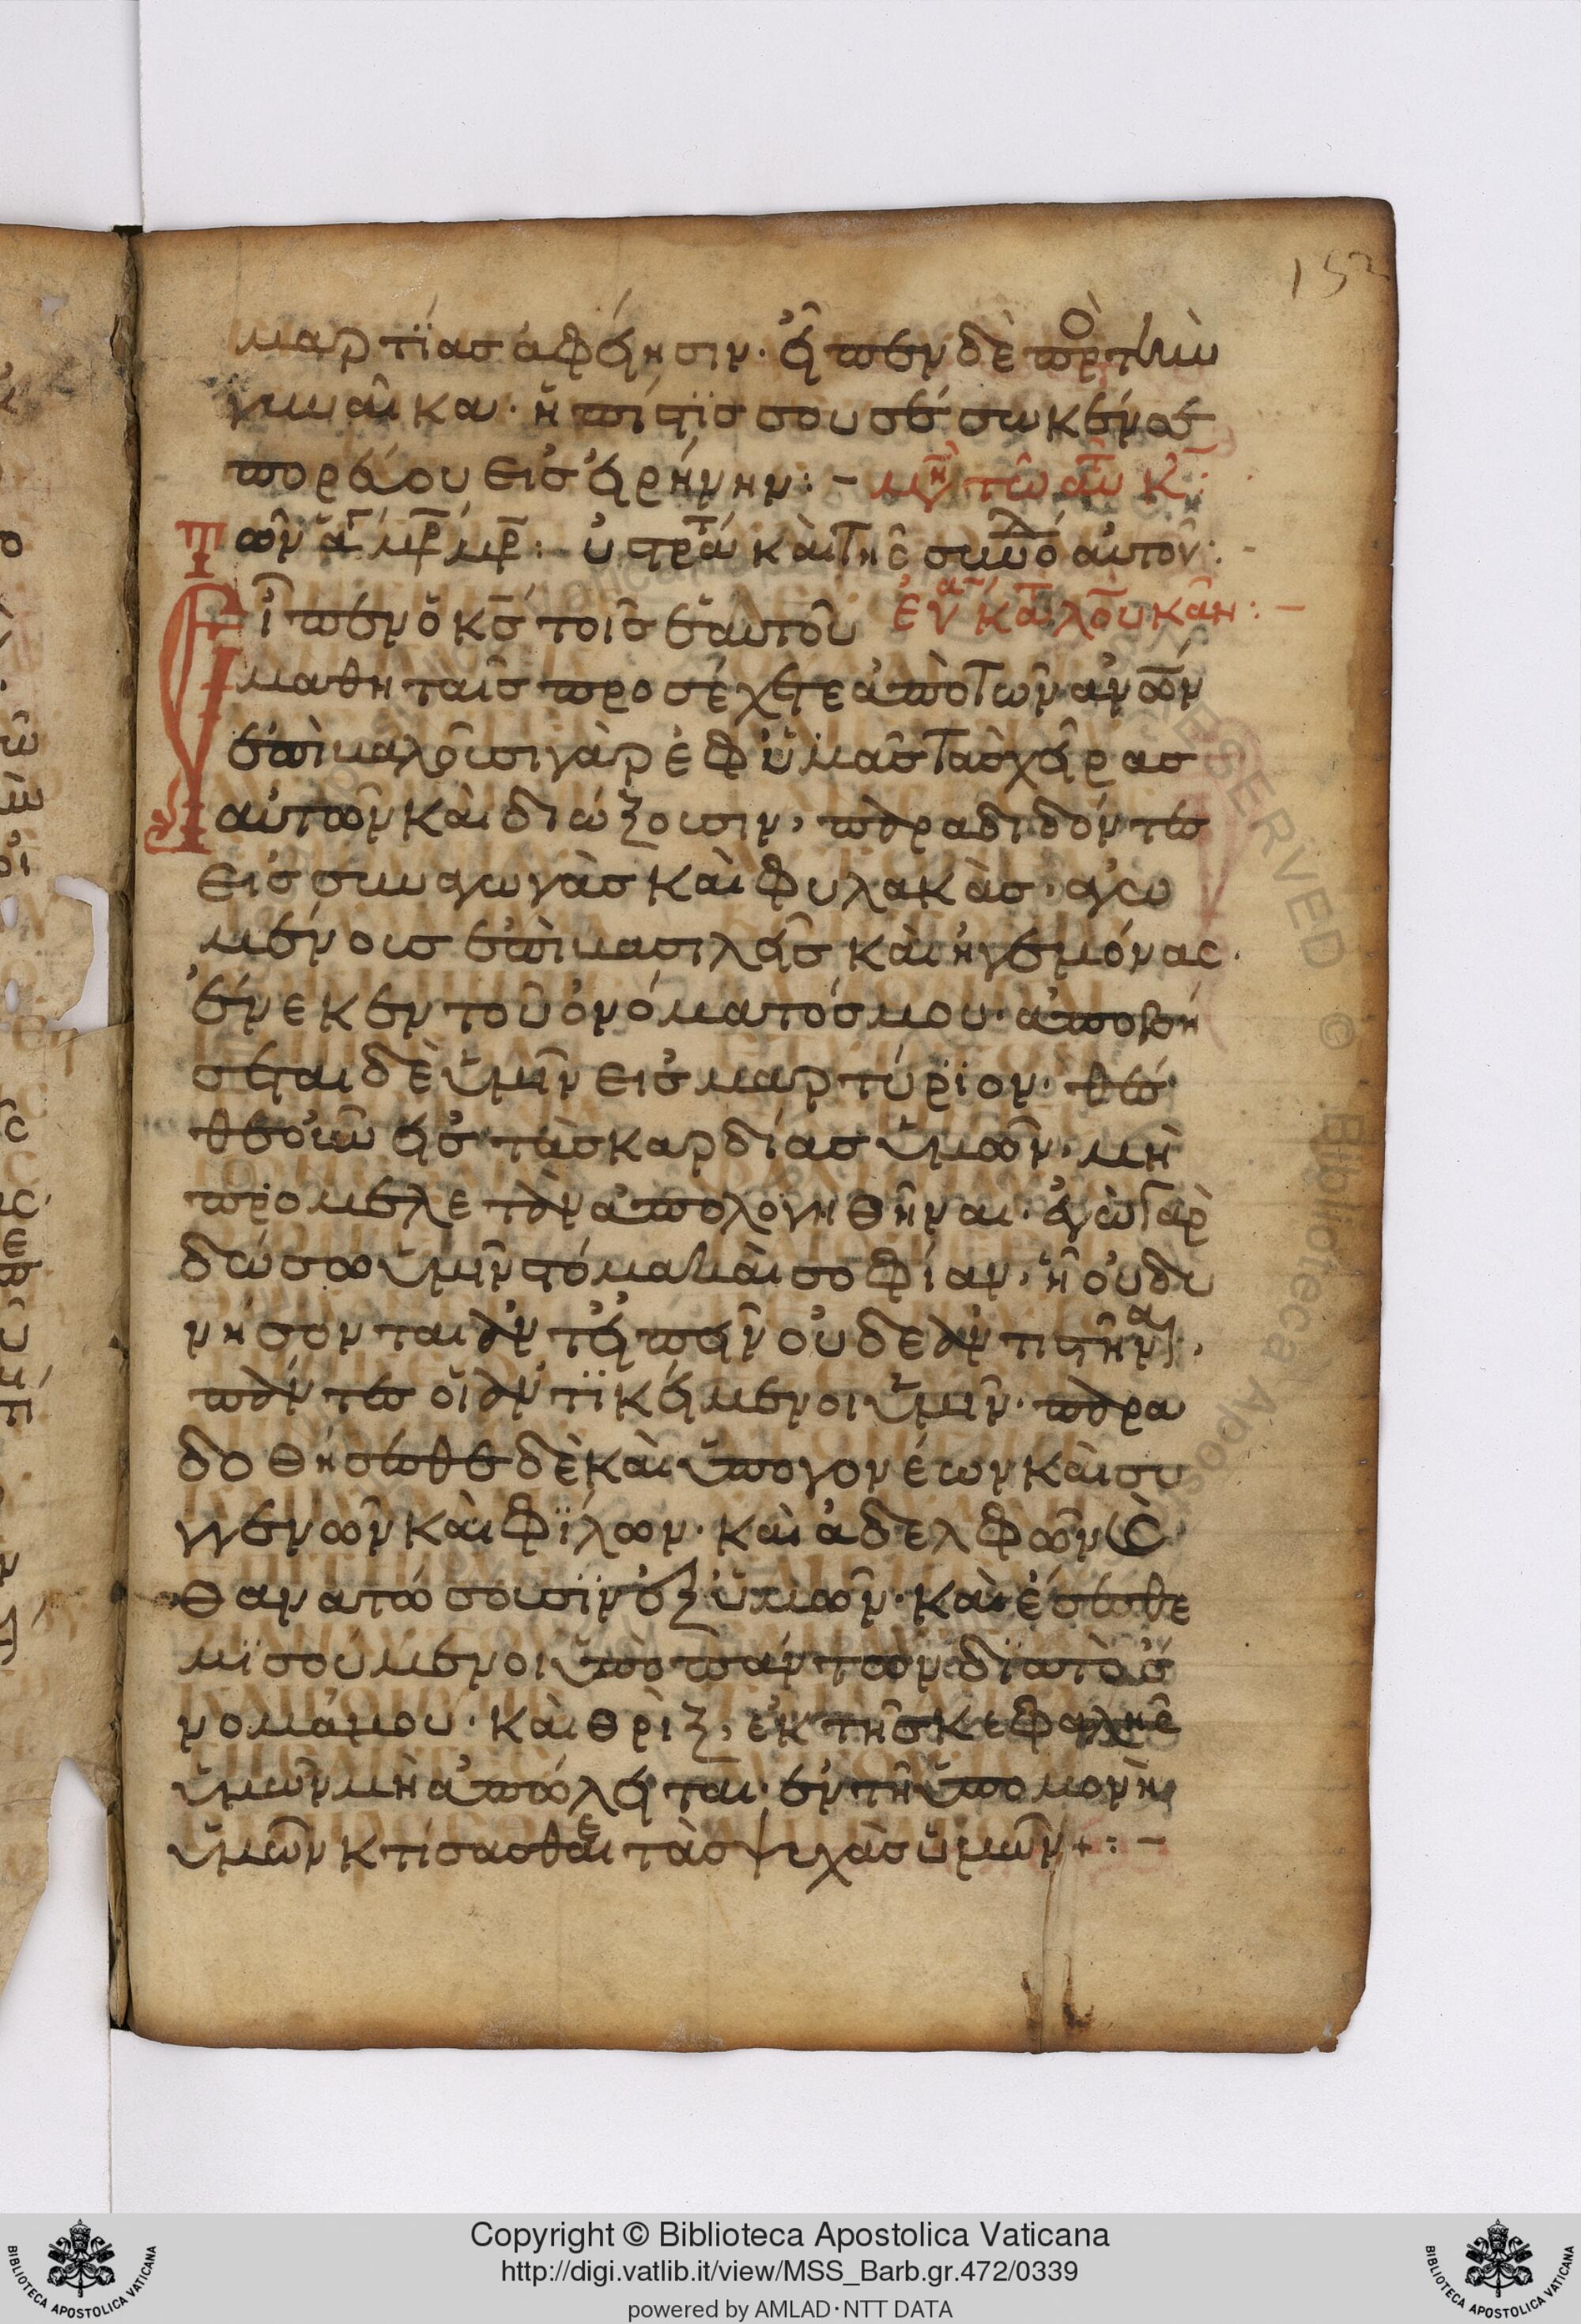 152
μαρτϊας ἀφίησιν· εἶπεν δὲ πρὸ τὴν
γυναῖκα· ἡ πίστϊς σου σέσωκέν σε
πορεύου εἰς εἰρήνην:– μὴν τῶ αὐτῶ κ̅:
τῶν ἁγ μρ μρ: εὐστρατ καὶ τῆς συνοδ αὐτοῦ:–
Εἶπεν ὁ κ̅ς̅ τοῖς ἑαυτοῦ εὐα κατ λουκᾶν:–
μαθηταῖς προσέχετε ἀπὸ τῶν ἀνω̅ν
ἐπιβαλοῦσι γὰρ ἐφ ὑμᾶς τὰς χεῖρας
αὐτῶν καὶ διώξουσιν, παραδιδόντες
εἰς συναγωγὰς καὶ φυλακὰς, ἀγω
μένους ἐπὶ βασιλεῖς καὶ ἡγεμόνας·
ἕνεκεν τοῦ ὀνόματός μου· ἀποβή
σεται δὲ ὑμῖν εἰς μαρτύρϊον· θέσ
θε οὖν εἰς τὰς καρδίας ὑμῶν, μὴ
προμελετᾶν ἀπολογηθῆναι· ἐγὼ γὰρ
δώσω ὑμῖν στόμα καὶ σοφίαν, ἧ οὐ δυ
νήσονται ἀντειπεῖν οὐδὲ ἀντιστῆναι,
πάντες οἱ ἀντϊκείμενοι ὑμῖν· παρα
δοθήσεσθε δὲ καὶ ὑπο γονέων καὶ συ
γγενῶν καὶ φϊλων· καὶ ἀδελφῶν καὶ
θανατώσουσϊν ἐξ ὑμῶν· καὶ ἔσεσθε
μϊσούμενοι ὑπὸ πάντων δϊὰ τὸ ὄ
νομά μου· καὶ θρὶξ, ἐκ τῆς κεφαλῆς
ὑμῶν μὴ ἀπόληται· ἐν τῆ ὑπομονῆ
ὑμῶν κτίσασθαιε τὰς ψυχὰς ὑμῶν+:–
Copyright © Biblioteca Apostolica Vaticana
http://digi.vatlib.it/view/MSS_Barb.gr.472/0339
powered by AMLAD·NTT DATA
BIBLIOTECA APOSTOLICA VATICANA
BIBLIOTECA APOSTOLICA VATICANA